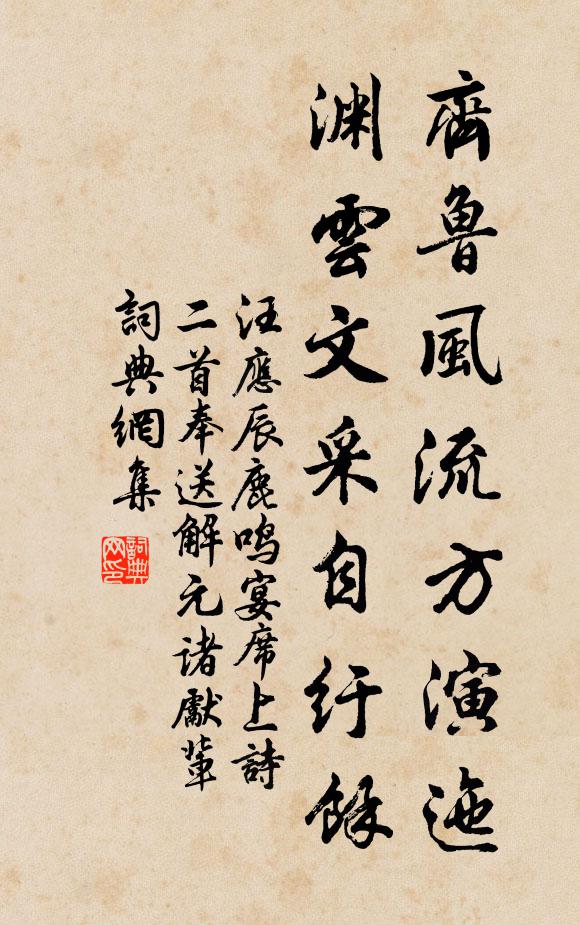 齊魯風流方演迤
淵雲文采自紆餘
汪應辰鹿鳴宴席上詩
二首奉送解元諸獻輩
詞典網集
詞典網印